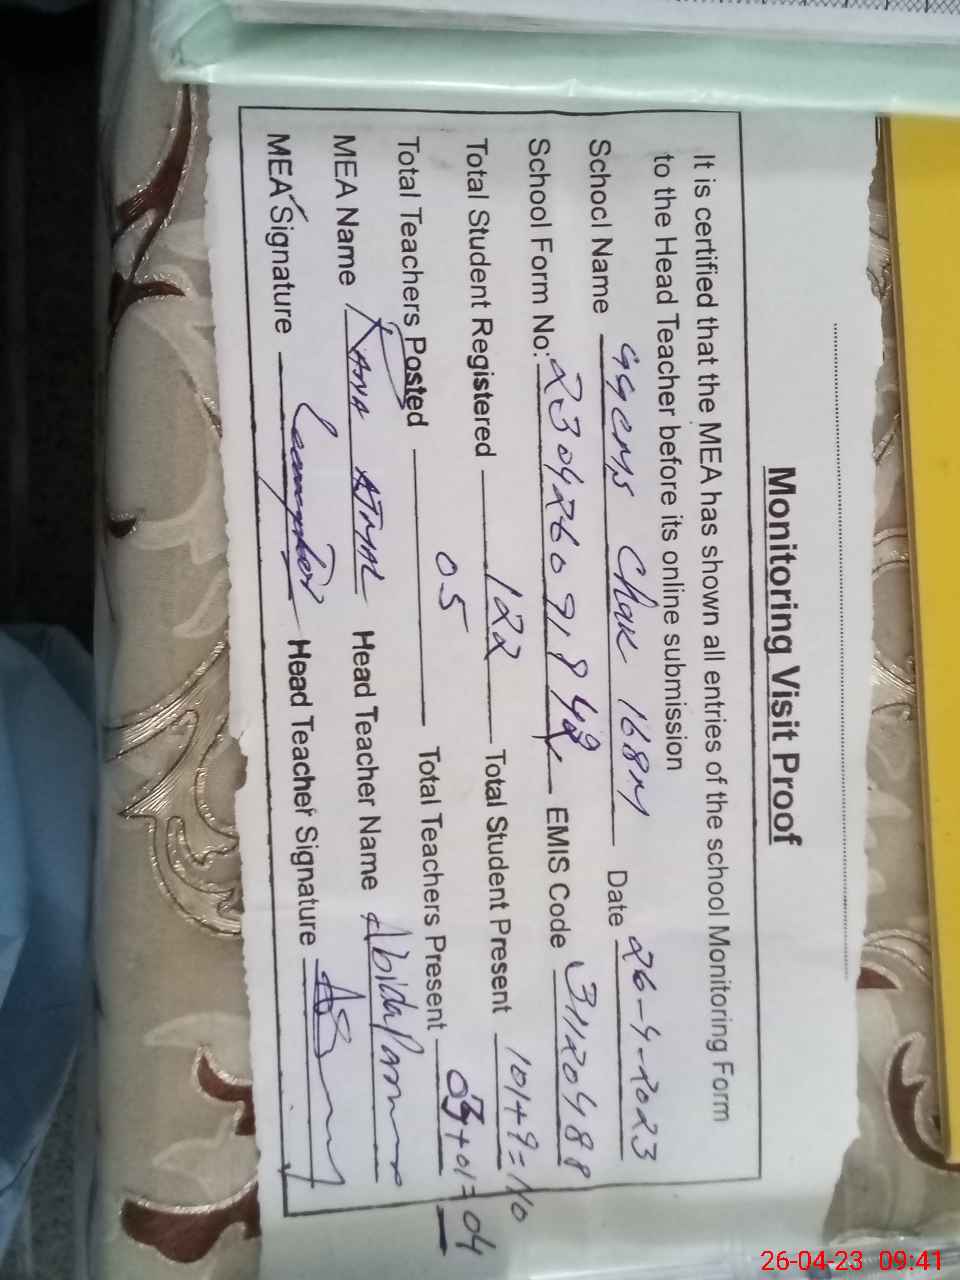 Monitoring Visit Proof
It is certified that the MEA has shown all entries of the school Monitoring Form
to the Head Teacher before its online submission
School Name GGCMS Chak 168M Date 26-4-2023
School Form No: EMIS Code 31120488
Total Student Registered 122 Total Student Present 101+9=110
Total Teachers Posted 05 Total Teachers Present 03+01=04
MEA Name Rana Head Teacher Name Abida
MEA Signature Head Teacher Signature
26-04-23 09:41